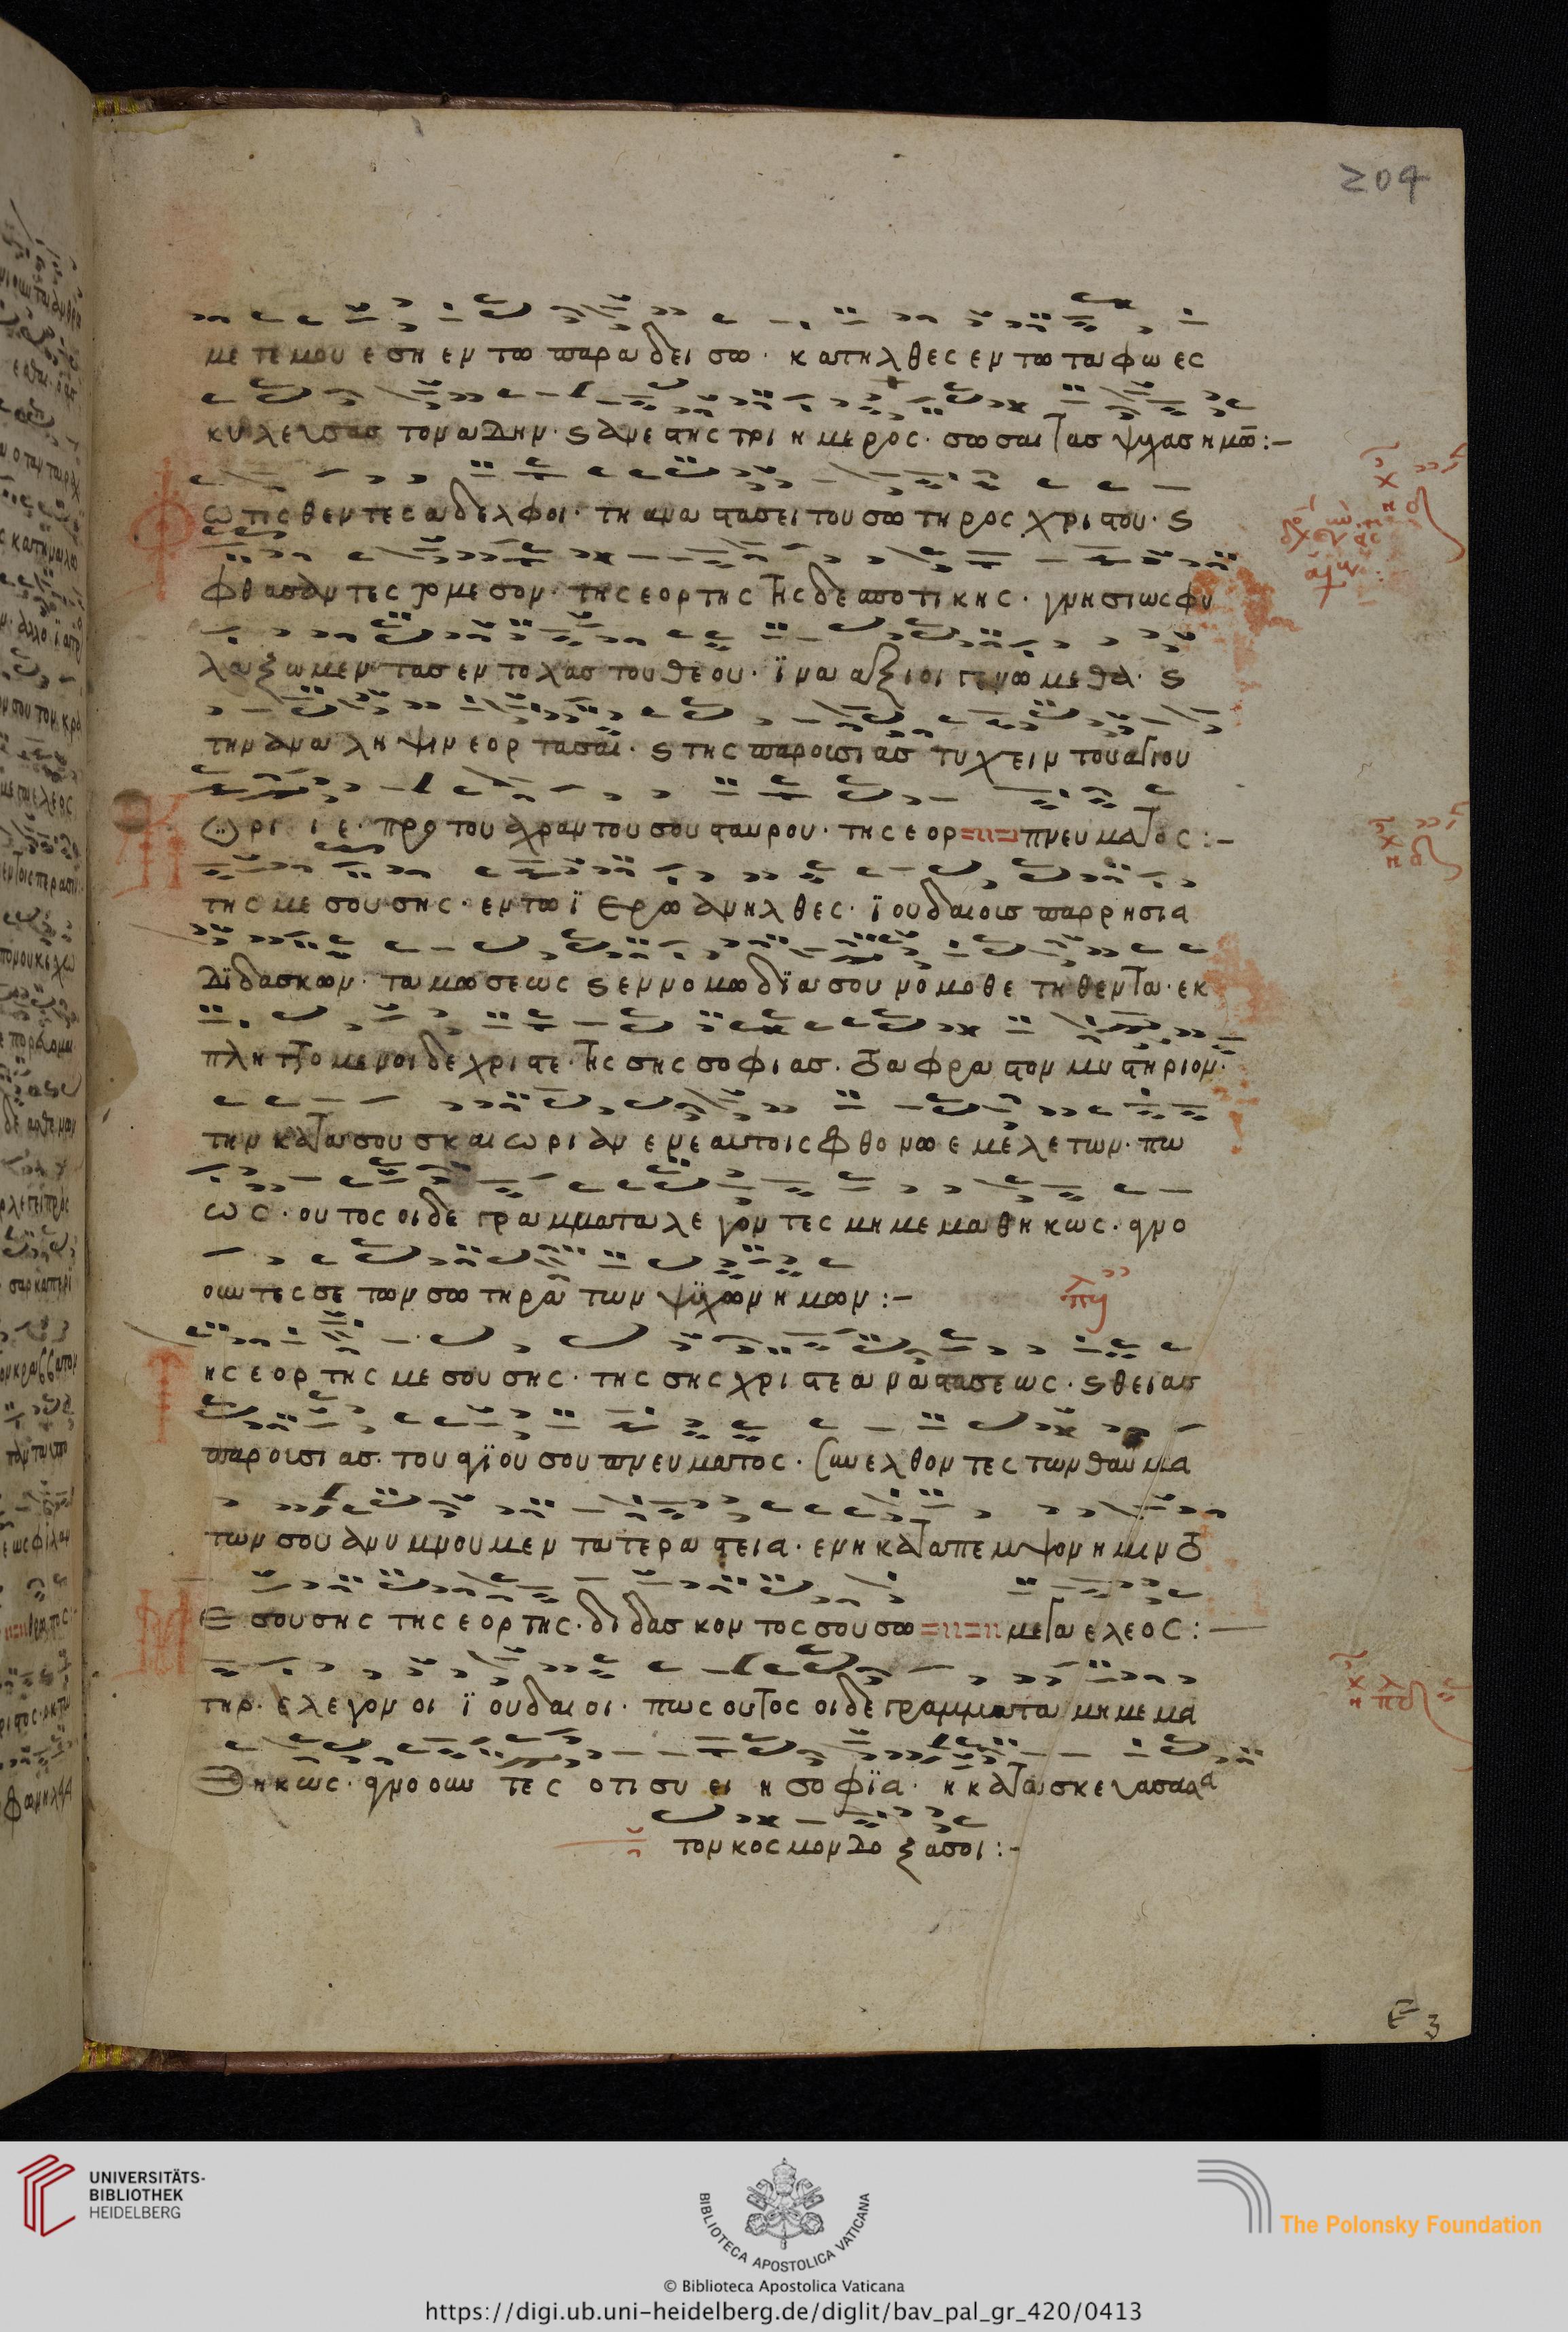 204
με τε μου ε ση εν τω παραδει σω · κατηλθες εν τω ταφω ες
κυλευσας τον αδην · ϛ ανεστης τριημερος · σωσαι τας ψχας ημω:—
ωτισθεντες αδελφοι · τη αναστασει του σωτηρος χριστου · ϛ
φθασαντες το μεσον · της εορτης της δεσποτικης · γνησιως φυ
λαξωμεν τας εντολας του θεου · ϊνα αξιοι γενωμεθα · ϛ
την αναληψιν εορτασαι · ϛ της παρουσιας τυχειν του αγιου
προ του αχραντου σου σταυρου · της εορ πνευματος:—
της μεσουσης · εν τω ϊερω ανηλθες · ϊουδαιοις παρρησια
διδασκων · τα μωσεως ϛ εν νομω δϊα σου νομοθετηθεντα · εκ
πληττομενοι δε χριστε · της σης σοφιας · το αφραστον μυστηριον ·
την κατα σου σκαιωριαν ερεαυτοις φθονω εμελετων · πω
ως · ουτος οιδε γραμματα λεγοντες μη μεμαθηκως · αγνο
ουντες σε τον σωτηρα των ψϋχων ημων:—
ης εορτης μεσουσης · της σης χριστε αναστασεως · ϛ θειας
παρουσιας · του αγϊου σου πνευματος · συνελθοντες των θαυμα
των σου ανυμνουμεν τα τεραστεια · εν η καταπεμψον ημιν το
εσουσης της εορτης · διδασκοντος σου σω μεγα ελεος:—
τηρ · ελεγον οι ϊουδαιοι · πως ουτος οιδε γραμματα μη μεμα
θηκως · αγνοουντες οτι συ ει η σοφϊα · η κατασκευασασα
τον κοσμον δοξα σοι:—
UNIVERSITÄTS-
BIBLIOTHEK
HEIDELBERG
BIBLIOTECA APOSTOLICA VATICANA
The Polonsky Foundation
© Biblioteca Apostolica Vaticana
https://digi.ub.uni-heidelberg.de/diglit/bav_pal_gr_420/0413